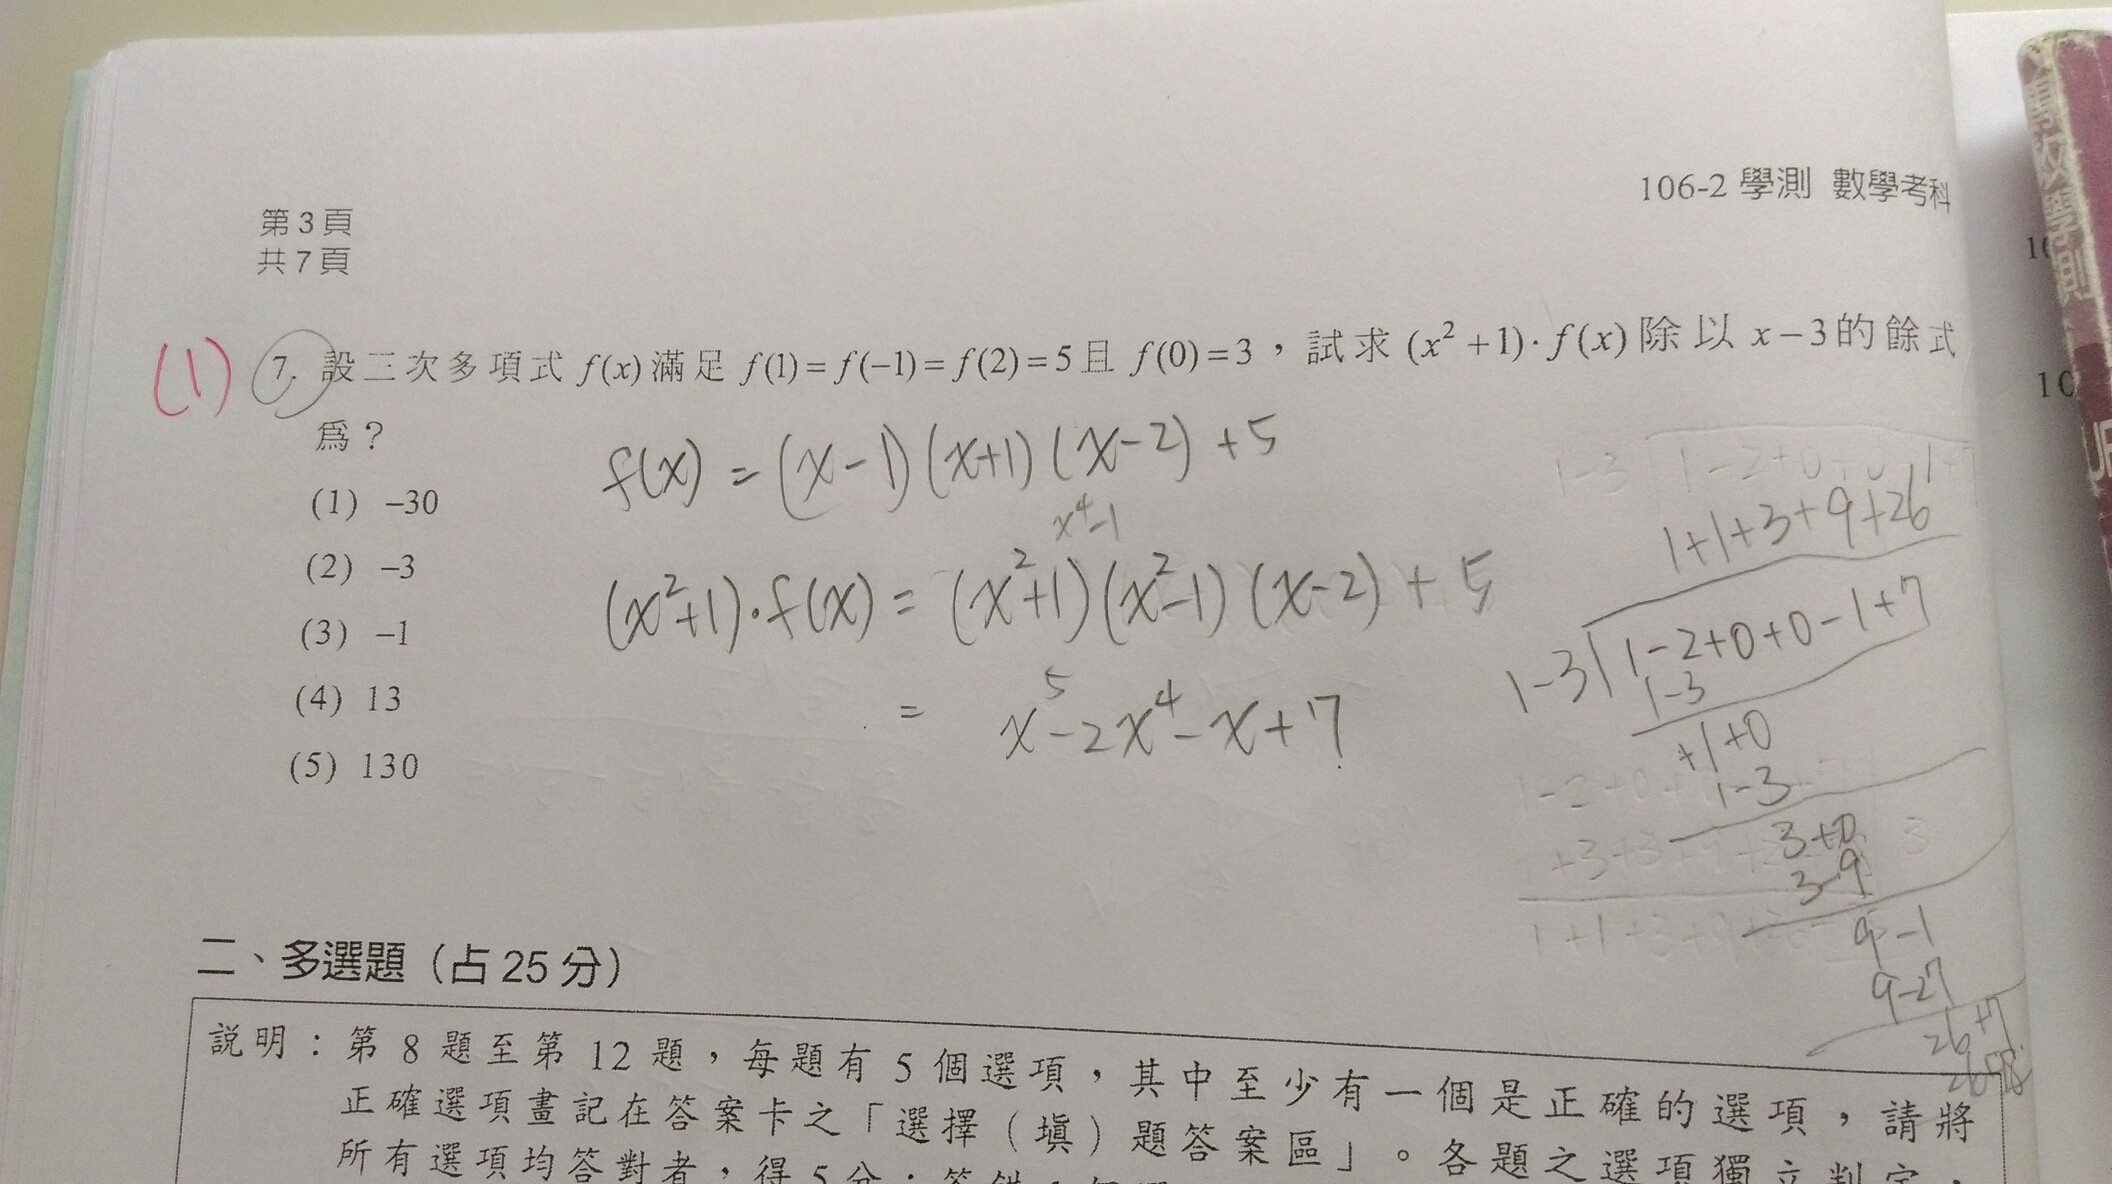 106-2 學測 數學考科
第3頁
共7頁
(1) 7. 設三次多項式 f(x) 滿足 f(1)=f(-1)=f(2)=5 且 f(0)=3，試求 (x²+1)·f(x) 除以 x-3 的餘式
為？
(1) -30
(2) -3
(3) -1
(4) 13
(5) 130
f(x) = (x-1)(x+1)(x-2)+5
x⁴-1
(x²+1)·f(x) = (x²+1)(x²-1)(x-2)+5
= x⁵-2x⁴-x+7
1+1+3+9+26
1-3 1-2+0+0-1+7
1-3
+1+0
1-3
3+0
3-9
9-1
9-27
26+7
二、多選題（占25分）
說明：第8題至第12題，每題有5個選項，其中至少有一個是正確的選項，請將
正確選項畫記在答案卡之「選擇（填）題答案區」。各題之選項獨立判定，
所有選項均答對者，得5分；答錯